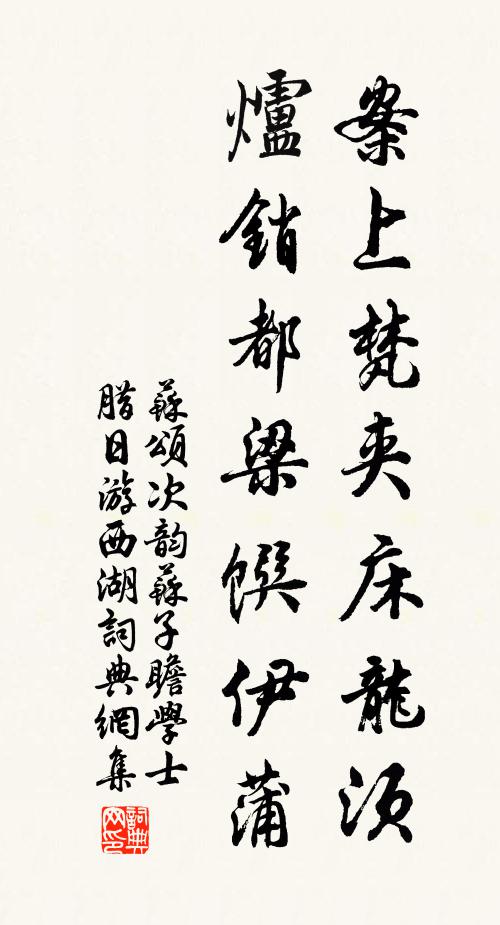 案上梵夹床龍須
爐銷都梁饌伊蒲
蘇頌次韵蘇子瞻學士
腊日游西湖詞典網集
詞典
网印